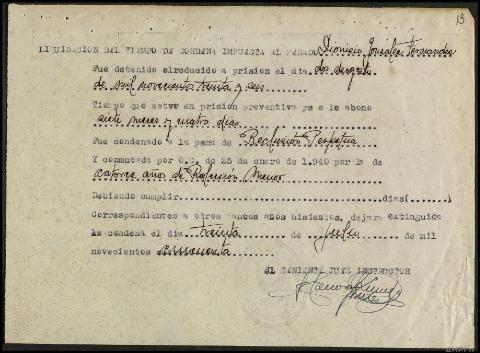 13
LIQUIDACION DEL TIEMPO DE CONDENA IMPUESTA AL PENADO Dionisio González Fernandez
Fue detenido o reducido a prision el dia dos agosto
de mil novecientos treinta y seis
Tiempo que estvo en prisión preventiva y se le abono
siete meses y cuatro dias
Fue condenado a la pena de Reclusión Perpetua
Y conmutada por O.C. de 25 de enero de 1.940 por la de
catorce años de Reclusión Menor
Debiendo cumplir dias( )
Correspondientes a otros tantos años bisiestos, dejara extinguida
la condena el dia treinta de Julio de mil
novecientos cincuenta
EL TENIENTE JUEZ INSTRUCTOR